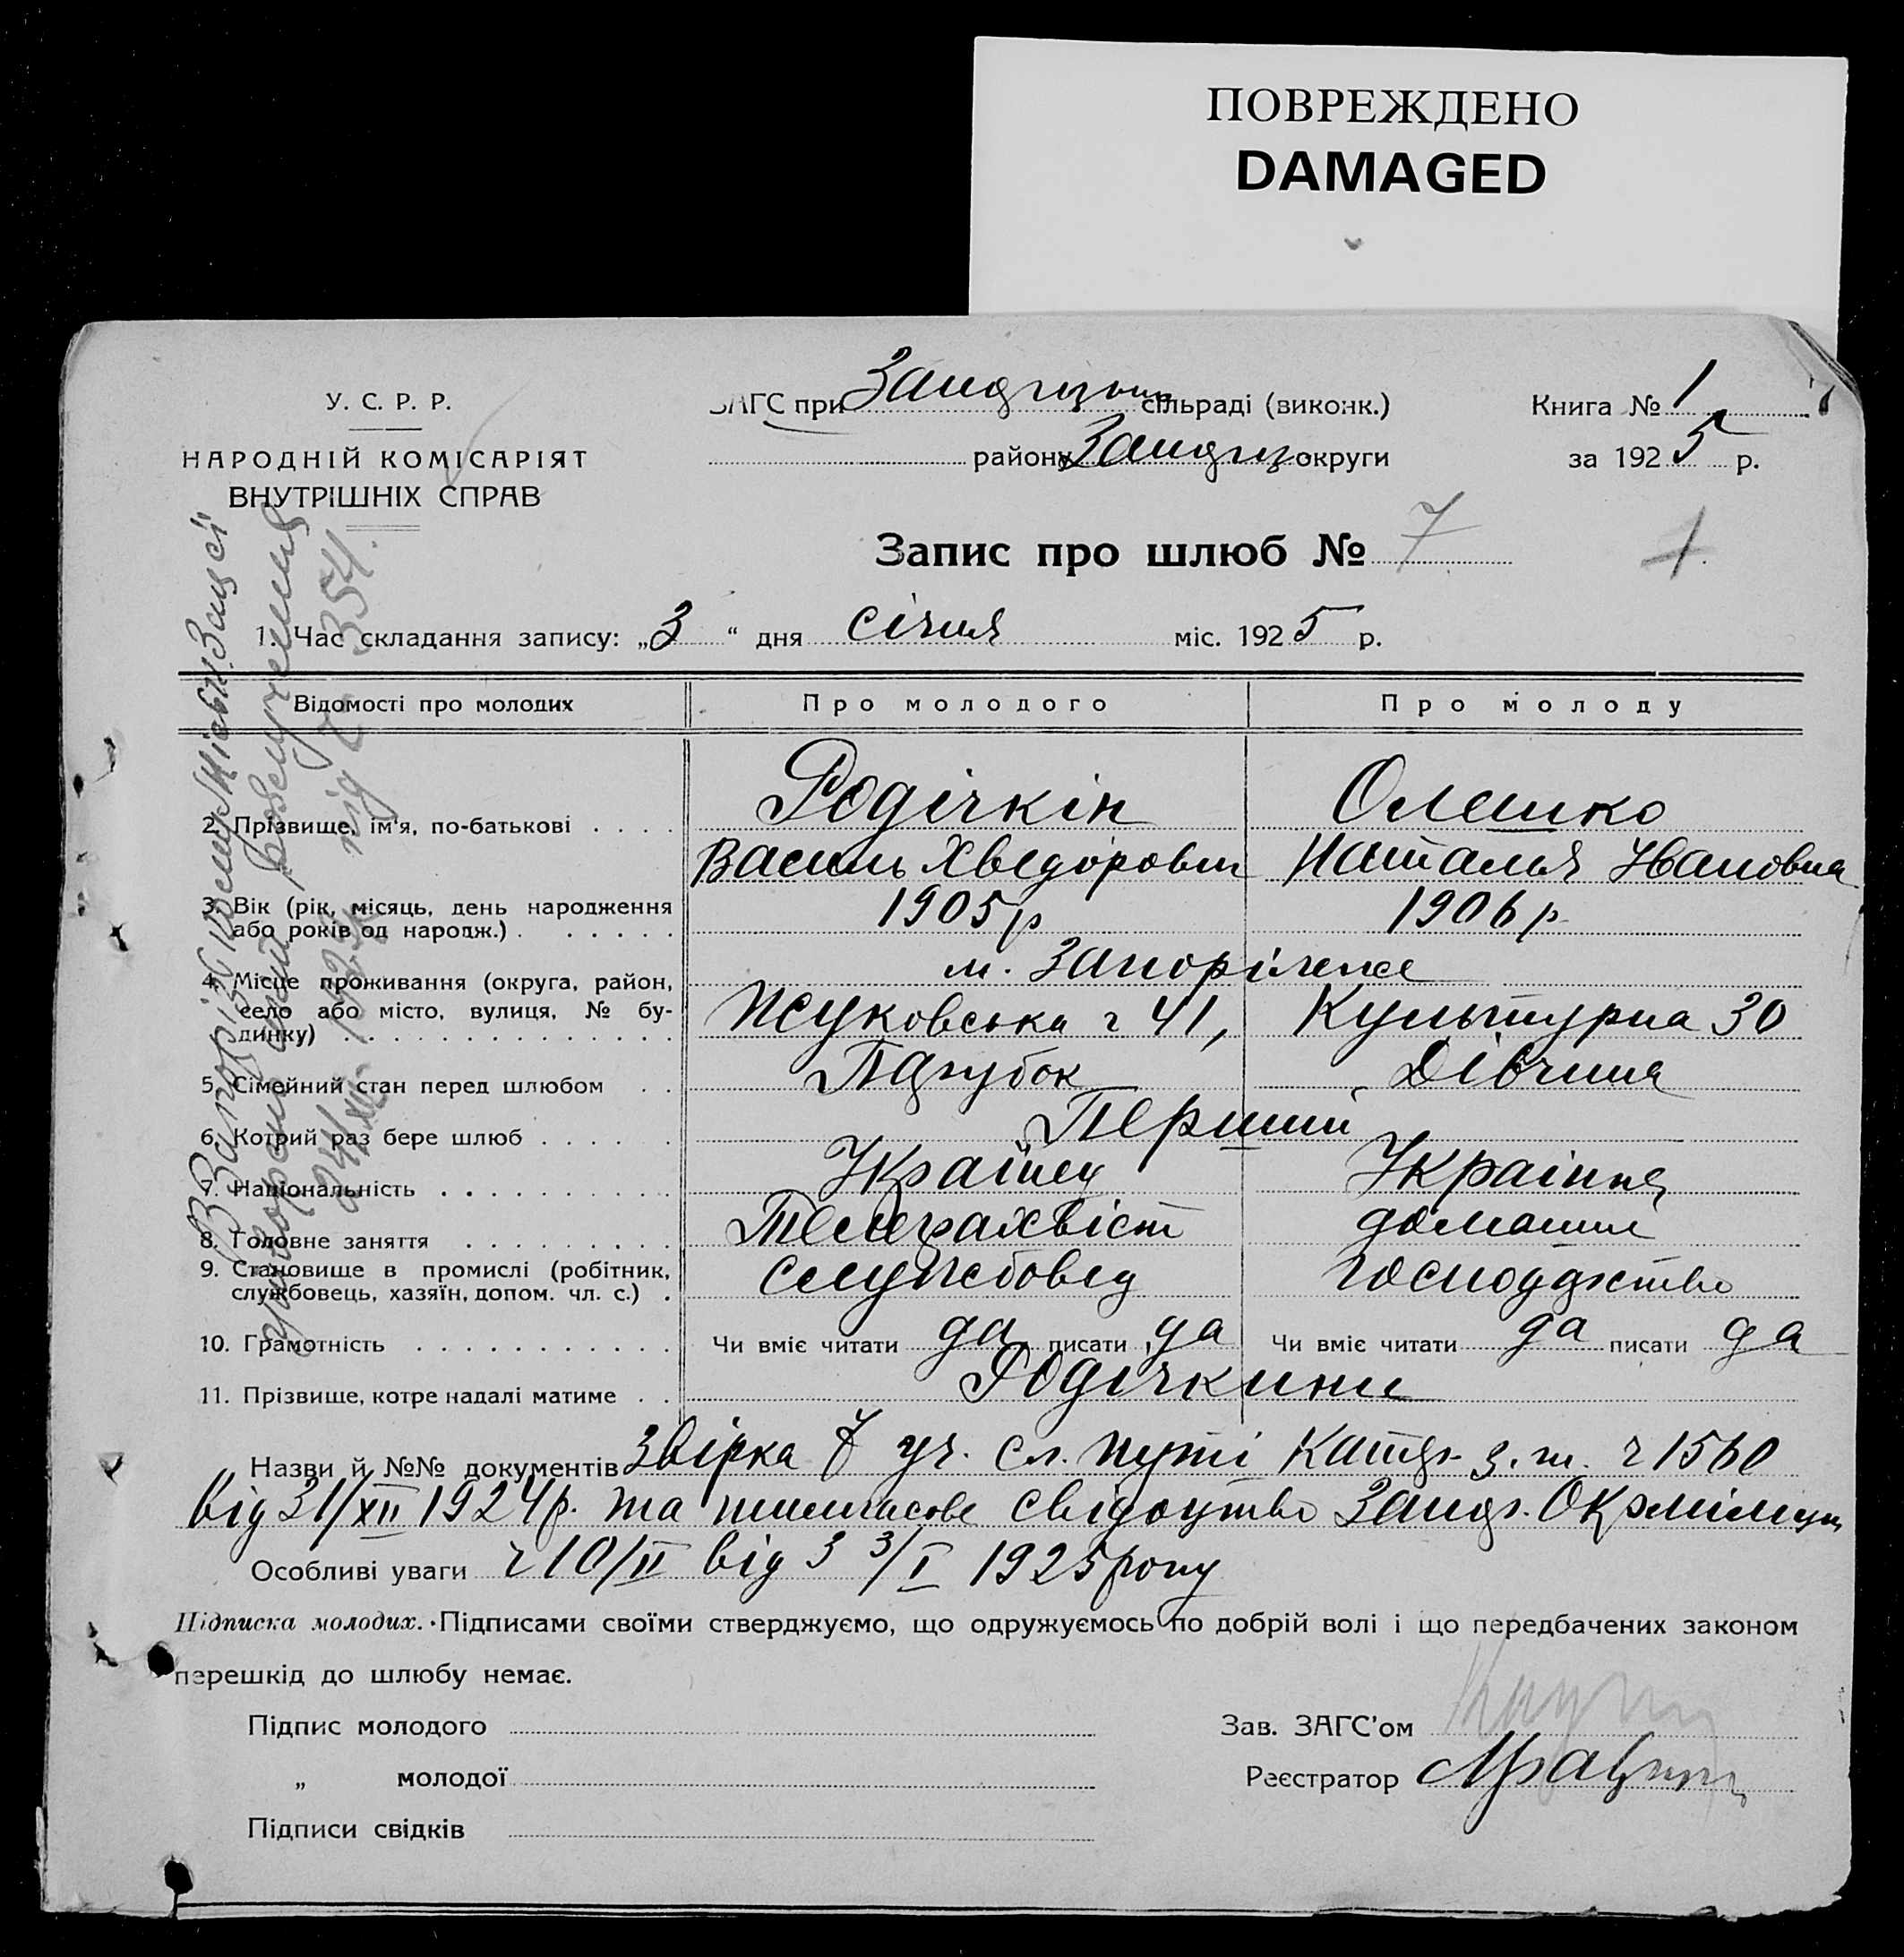 ПОВРЕЖДЕНО
DAMAGED
У. С. Р. Р.
НАРОДНІЙ КОМІСАРІЯТ
ВНУТРІШНІХ СПРАВ
ЗАГС при сільраді (виконк.)
району округи
Книга № 1
за 1925 р.
Запис про шлюб № 7
1. Час складання запису: „3“ дня січня міс. 1925 р.
Відомості про молодих Про молодого Про молоду
2. Прізвище, ім'я, по-батькові . . . . Родічкін Олешко
Василь Хведорович Наталья Ивановна
3. Вік (рік, місяць, день народження або років од народж.) . . . . . . 1905 р 1906 р
4. Місце проживання (округа, район, село або місто, вулиця, № будинку) м. Запоріжже
Жуковська ч 41, Культурна 30
5. Сімейний стан перед шлюбом . . Парубок Дівчина
6. Котрий раз бере шлюб . . . . . Перший
7. Національність . . . . . . . . . Українец Українка
8. Головне заняття . . . . . . . . Телеграхвіст домашнє
9. Становище в промислі (робітник, службовець, хазяїн, допом. чл. с.) . службовец господарство
10. Грамотність . . . . . . . . . . . Чи вміє читати да писати да Чи вміє читати да писати да
11. Прізвище, котре надалі матиме . . Родічкини
Назви й №№ документів Звірка 7 уч. сл. путі Катер. з. ч 1560
від 31/XII 1924 р. та тимчасове свідоцтво
Особливі уваги ч 10/II від 3 3/I 1925 року
Підписка молодих. Підписами своїми стверджуємо, що одружуємось по добрій волі і що передбачених законом
перешкід до шлюбу немає.
Підпис молодого
„ молодої
Підписи свідків
Зав. ЗАГС'ом
Реєстратор